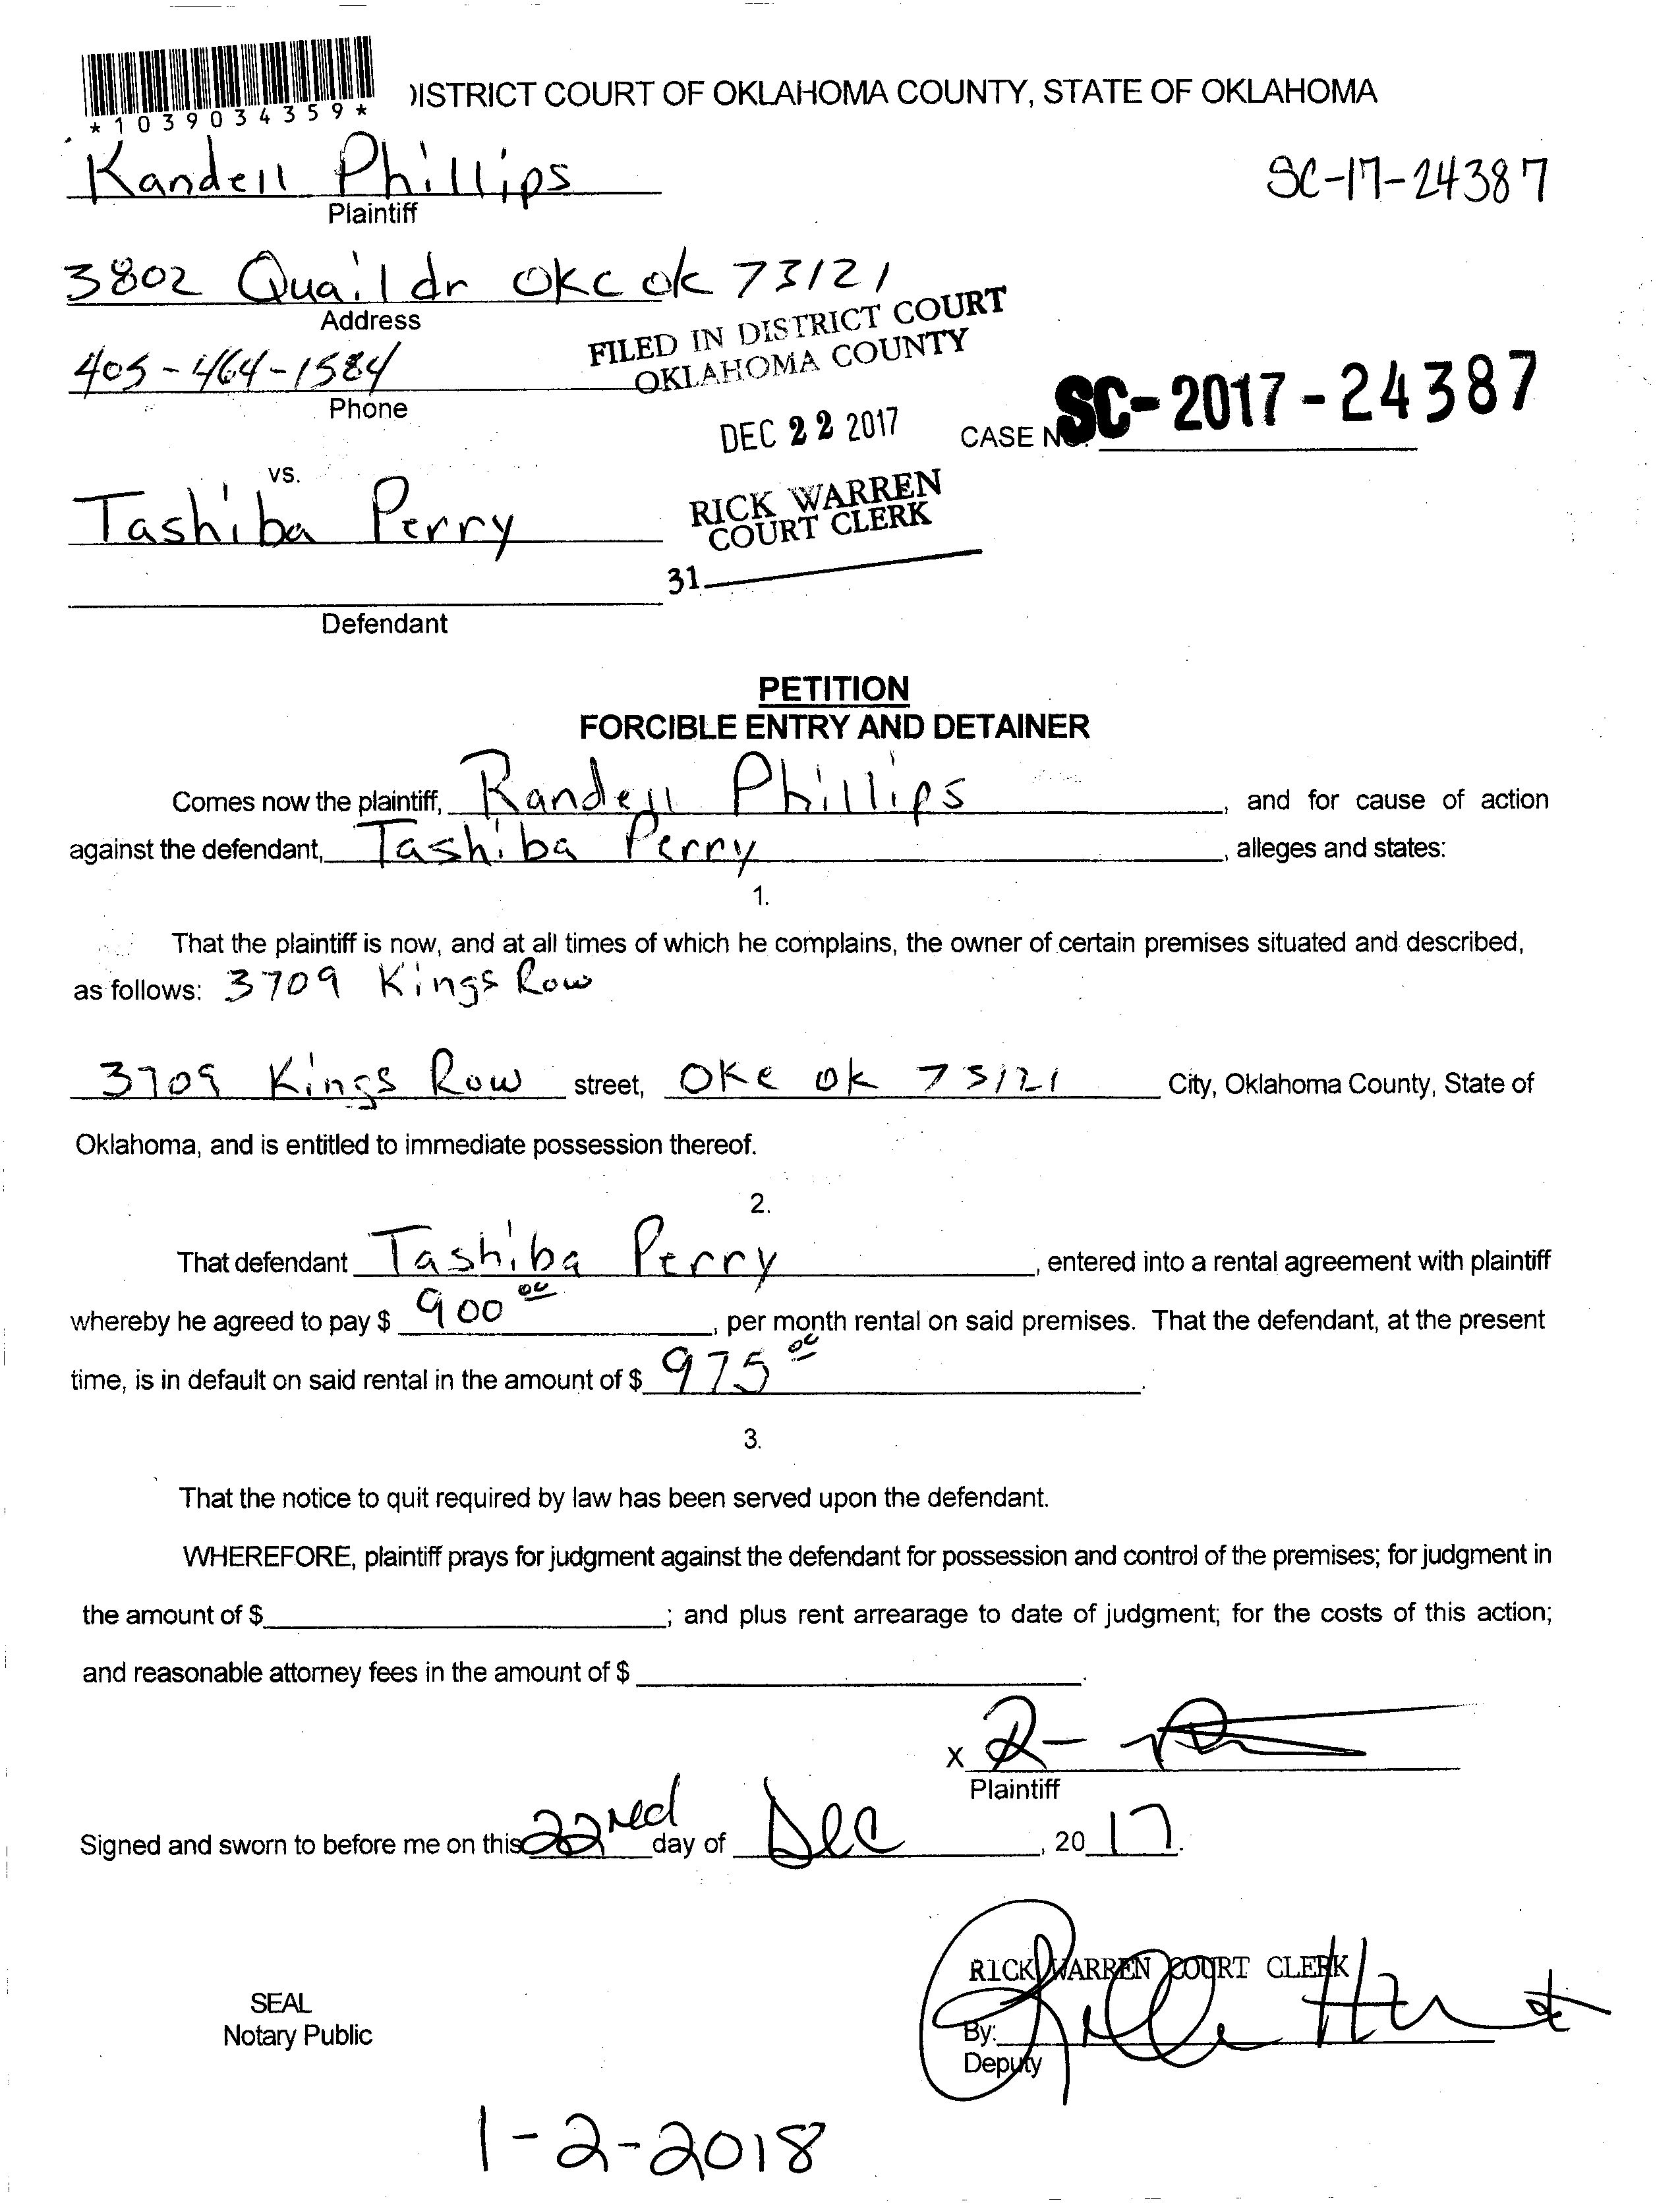 *1039034359*
DISTRICT COURT OF OKLAHOMA COUNTY, STATE OF OKLAHOMA
Randell Phillips
Plaintiff
SC-17-24387
3802 Quail dr OKC ok 73121
Address
405-464-1584
Phone
FILED IN DISTRICT COURT
OKLAHOMA COUNTY
DEC 22 2017
CASE NO. SC-2017-24387
vs.
Tashiba Perry
RICK WARREN
COURT CLERK
31
Defendant
PETITION
FORCIBLE ENTRY AND DETAINER
Comes now the plaintiff, Randell Phillips, and for cause of action
against the defendant, Tashiba Perry, alleges and states:
1.
That the plaintiff is now, and at all times of which he complains, the owner of certain premises situated and described,
as follows: 3709 Kings Row
3709 Kings Row street, OKC ok 73121 City, Oklahoma County, State of
Oklahoma, and is entitled to immediate possession thereof.
2.
That defendant Tashiba Perry, entered into a rental agreement with plaintiff
whereby he agreed to pay $ 900 00, per month rental on said premises. That the defendant, at the present
time, is in default on said rental in the amount of $ 975 00.
3.
That the notice to quit required by law has been served upon the defendant.
WHEREFORE, plaintiff prays for judgment against the defendant for possession and control of the premises; for judgment in
the amount of $ ; and plus rent arrearage to date of judgment; for the costs of this action;
and reasonable attorney fees in the amount of $ .
X
Plaintiff
Signed and sworn to before me on this 22ned day of Dec, 2017.
RICK WARREN COURT CLERK
SEAL
Notary Public
By:
Deputy
1-2-2018